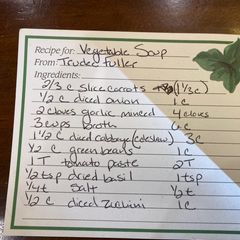 Recipe for: Vegetable Soup
From: Trudey Fuller
Ingredients:
2/3 c slice carrots (1 1/3 c)
1/2 c diced onion 1 c
2 cloves garlic minced 4 cloves
3 cups broth 6 c
1 1/2 c diced cabbage (coleslaw) 3c
1/2 c green beans 1 c
1 T tomato paste 2T
1/2 tsp dried basil 1 tsp
1/4 t salt 1/2 t
1/2 c diced zucchini 1 c